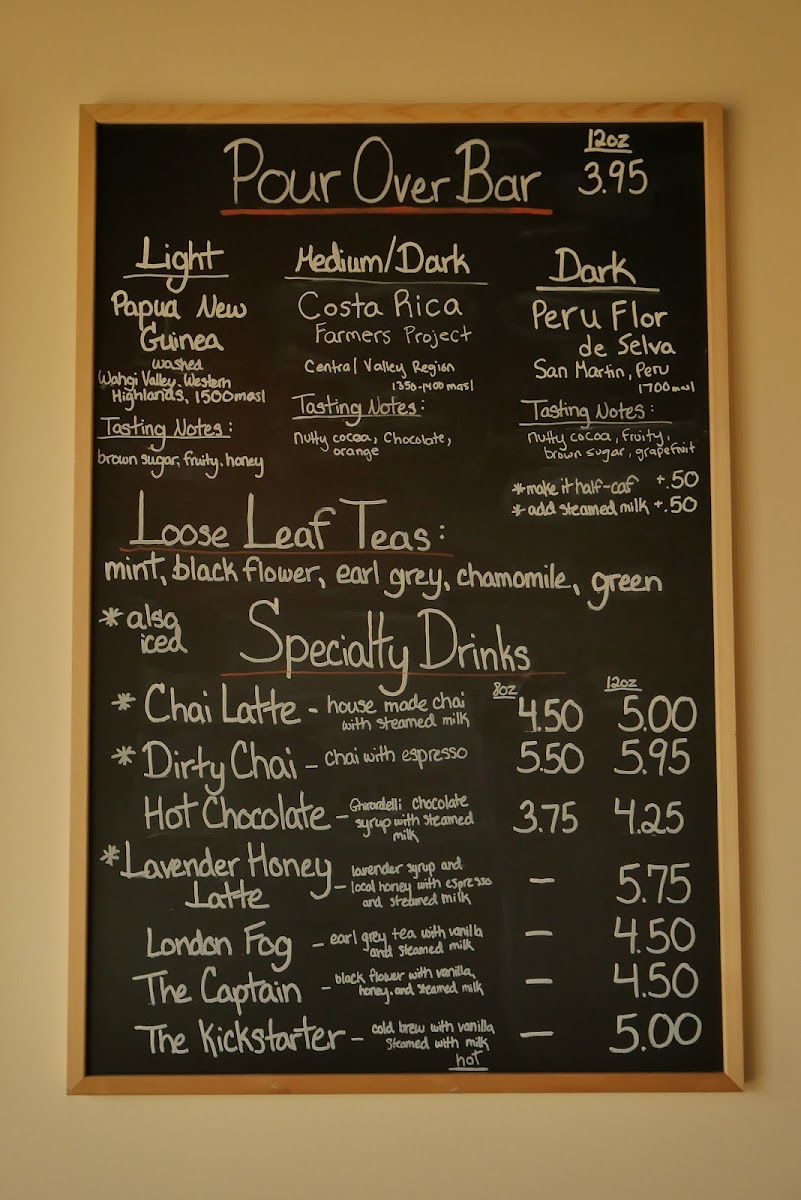 Pour Over Bar
12oz
3.95
Light
Papua New
Guinea
washed
Wahgi Valley, Western
Highlands, 1500masl
Tasting Notes:
brown sugar, fruity, honey
Medium/Dark
Costa Rica
Farmers Project
Central Valley Region
1350-1400 masl
Tasting Notes:
nutty cocoa, Chocolate,
orange
Dark
Peru Flor
de Selva
San Martin, Peru
1700 masl
Tasting Notes:
nutty cocoa, fruity,
brown sugar, grapefruit
*make it half-caf +.50
*add steamed milk +.50
Loose Leaf Teas:
mint, black flower, earl grey, chamomile, green
*also
iced
Specialty Drinks
8oz 12oz
* Chai Latte - house made chai
with steamed milk 4.50 5.00
* Dirty Chai - chai with espresso 5.50 5.95
Hot Chocolate - Ghirardelli chocolate
syrup with steamed
milk 3.75 4.25
*Lavender Honey
Latte - lavender syrup and
local honey with espresso
and steamed milk - 5.75
London Fog - earl grey tea with vanilla
and steamed milk - 4.50
The Captain - black flower with vanilla,
honey, and steamed milk - 4.50
The Kickstarter - cold brew with vanilla
steamed with milk
hot - 5.00